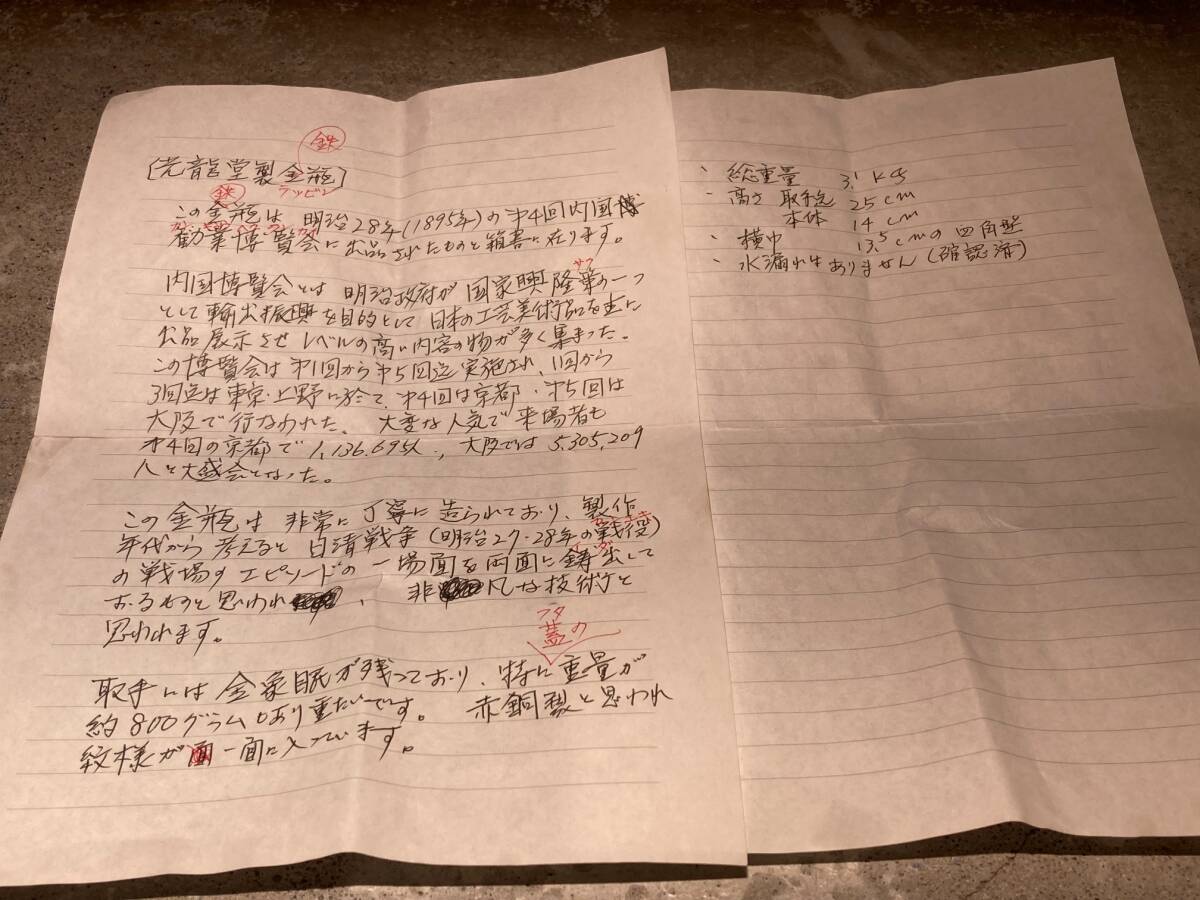 鉄
〔光龍堂製金瓶〕
鉄 テツビン
この金瓶は 明治28年(1895年)の才4回内国
勧業博覧会に出品されたものと箱書に在ります。
サク
内国博覧会とは 明治政府が国家興隆策の一つ
として輸出振興を目的として 日本の工芸美術品を主に
出品展示させ レベルの高い内容の物が多く集まった。
この博覧会は才1回から才5回迄実施され、1回から
3回迄は東京・上野に於て、才4回は京都・才5回は
大阪で行なわれた。 大変な人気で来場者も
才4回の京都で1,136,695人、大阪では5,305,209
人と大盛会となった。
この金瓶は 非常に丁寧に造られており、製作
年代から考えると日清戦争(明治27・28年の戦役)
の戦場のエピソードの一場面を両面に鋳出して
おるものと思われ、 非凡な技術だと
思われます。
フタ
蓋の
取手には金象眠が残っており、特に重量が
約800グラムもあり重たいです。 赤銅製と思われ
紋様が一面に入っています。
、総重量 3.1KG
・高さ 取手迄 25cm
本体 14cm
・横巾 13.5cmの四角型
・水漏れはありません(確認済)